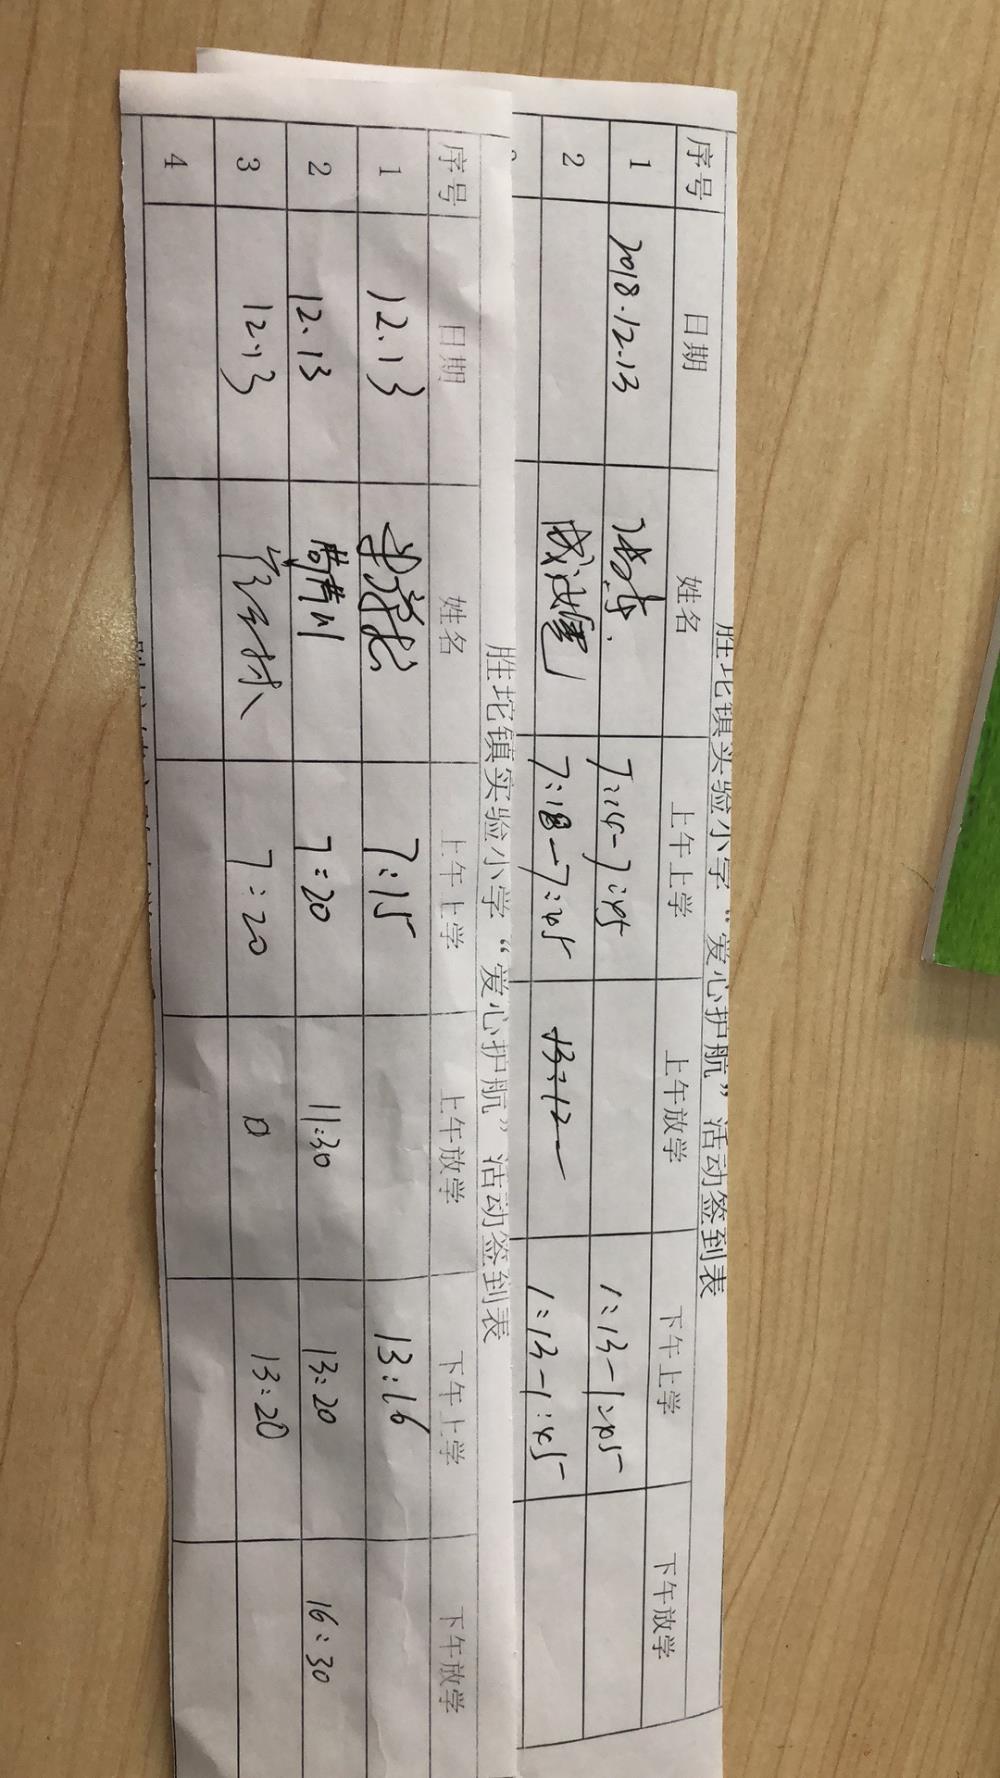 胜坨镇实验小学“爱心护航”活动签到表
序号 日期 姓名 上午上学 上午放学 下午上学 下午放学
1 2018.12.13 7:14-7:45 1:13-1:45
2 7:18-7:45 13:12 1:13-1:45
胜坨镇实验小学“爱心护航”活动签到表
序号 日期 姓名 上午上学 上午放学 下午上学 下午放学
1 12.13 7:15 13:16
2 12.13 7:20 11:30 13:20 16:30
3 12.13 7:20 0 13:20
4